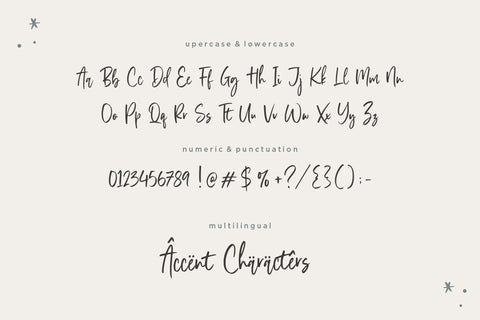 upercase & lowercase
Aa Bb Cc Dd Ee Ff Gg Hh Ii Jj Kk Ll Mm Nn
Oo Pp Qq Rr Ss Tt Uu Vv Ww Xx Yy Zz
numeric & punctuation
0123456789 !@#$%+?/{}():-
multilingual
Âccënt Chäräctêrs